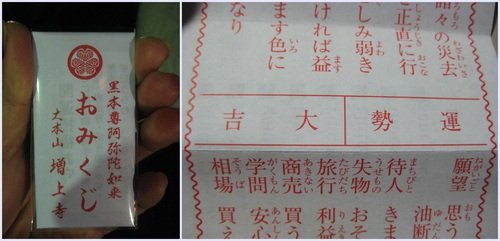 黒本尊阿弥陀如来
おみくじ
大本山 増上寺
諸々の災去
正直に行
しみ弱き
ければ益
ます色に
なり
運勢
大吉
願望 思う
油断
待人 きま
失物 おそ
旅行 利益
商売 買う
学問 安心
相場 買え